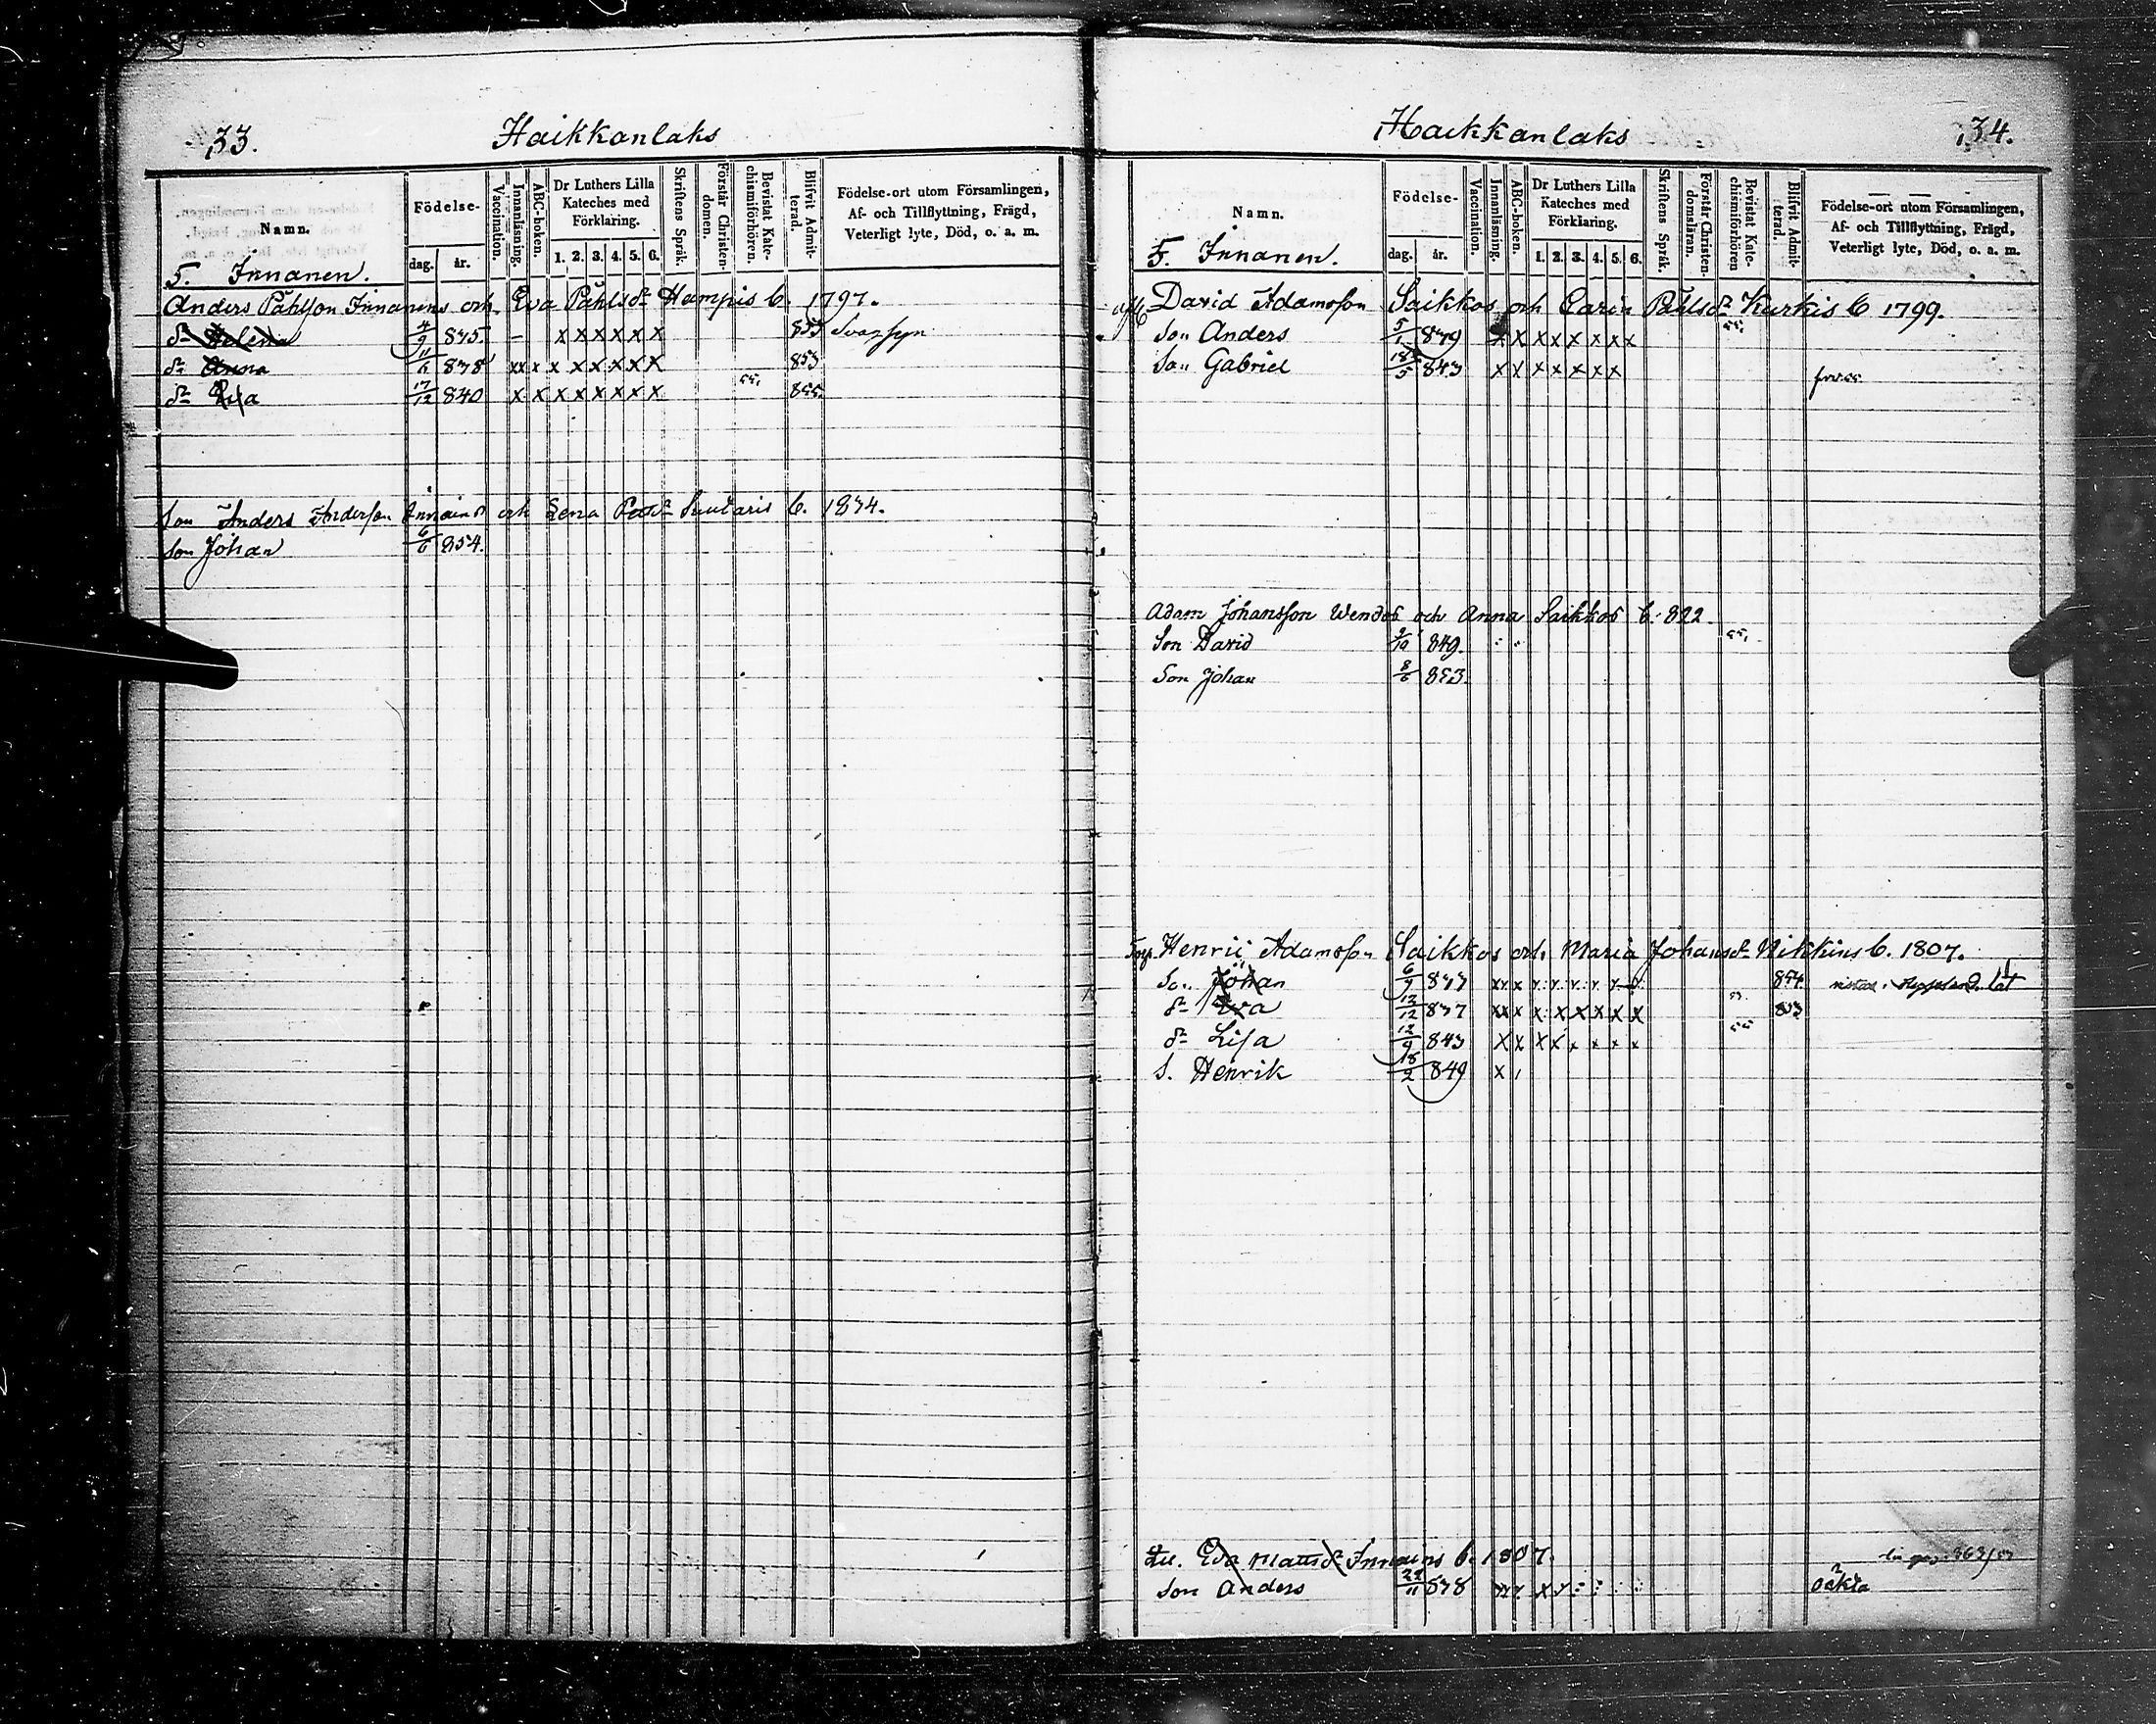 33.
Haikkanlaks
Namn.
Födelse-
dag.
år.
Vaccination.
Innanläsning.
ABC-boken.
Dr Luthers Lilla
Kateches med
Förklaring.
1. 2. 3. 4. 5. 6.
Skriftens Språk.
Förstår Christen-
domen.
Bevistat Kate-
chismiförhören.
Blifvit Admit-
terad.
Födelse-ort utom Församlingen,
Af- och Tillflyttning, Frägd,
Veterligt lyte, Död, o. a. m.
5. Innanen.
Anders Påhlsson Innanens och Eva Påhlsdr Hampis b. 1797.
dr Helena 4/9 835 – x x x x x x 853
dr Anna 11/6 838 xx x x x x x x x 853
dr Lisa 17/12 840 x x x x x x x x 55. 855.
Son Anders Andersson och Lena Suutaris b. 1834.
Son Johan 6/6 854.
34.
Haikkanlaks
Namn.
Födelse-
dag.
år.
Vaccination.
Innanläsning.
ABC-boken.
Dr Luthers Lilla
Kateches med
Förklaring.
1. 2. 3. 4. 5. 6.
Skriftens Språk.
Förstår Christen-
domsläran.
Bevistat Kate-
chismiförhören
Blifvit Admit-
terad.
Födelse-ort utom Församlingen,
Af- och Tillflyttning, Frägd,
Veterligt lyte, Död, o. a. m.
5. Innanen.
David Adamsson Saikkos och Carin Påhlsdr Kurkis b 1799.
Son Anders 5/1 839 x x x x x x x x 55.
Son Gabriel 18/5 843 x x x x x x x
Adam Johansson Wendos och Anna Saikkos b. 822.
Son David 2/10 849. 55.
Son Johan 8/6 853.
Henric Adamsson Saikkos och Maria Johansdr Nikkins b. 1807.
Son Johan 6/9 837 854
dr Eva 12/12 837 xx x x x x x x x 53. 853
dr Lisa 12/9 843 x x x x x x x x 55
S. Henrik 18/2 849 x
Eva Mattsdr Innains b. 1807.
Son Anders 22/11 838